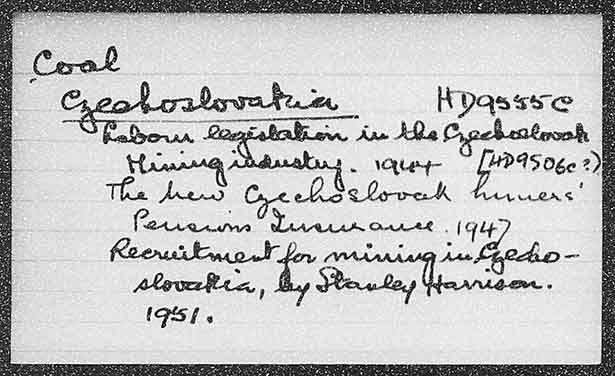 Coal
Czechoslovakia HD9555C
Labour legislation in the Czechoslovak
Mining industry. 1944 [HD9506c?)
The new Czechoslovak miners'
Pensions Insurance. 1947
Recruitment for mining in Czecho-
slovakia, by Stanley Harrison.
1951.